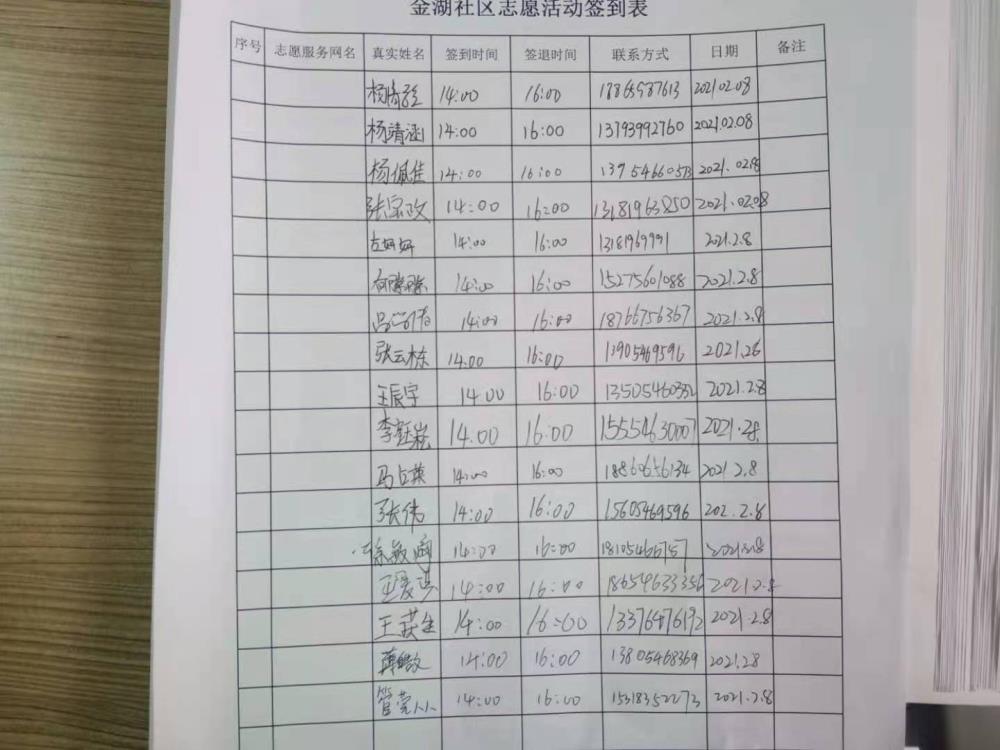 金湖社区志愿活动签到表
序号 志愿服务网名 真实姓名 签到时间 签退时间 联系方式 日期 备注
14:00 16:00 18865987613 2021.02.08
杨靖涵 14:00 16:00 13793992760 2021.02.08
杨佩佳 14:00 16:00 2021.02.08
张宝政 14:00 16:00 13181963850 2021.02.08
左妍妍 14:00 16:00 13181969991 2021.2.8
14:00 16:00 15275601088 2021.2.8
14:00 16:00 18766756367 2021.2.8
张云栋 14.00 16:00 13905469596 2021.26
王辰宇 14:00 16:00 13505460332 2021.2.8
李 14:00 16:00 15554630007 2021.28.
马 14:00 16:00 18860656134 2021.2.8
张伟 14:00 16:00 15605469596 202.2.8
徐敏 14:00 16:00 2021.2.8
王爱 14:00 16:00 18654633356 2021.2.8
王 14:00 16:00 13376476192 2021.2.8
14:00 16:00 13805468369 2021.28
管 14:00 16:00 15318352273 2021.2.8